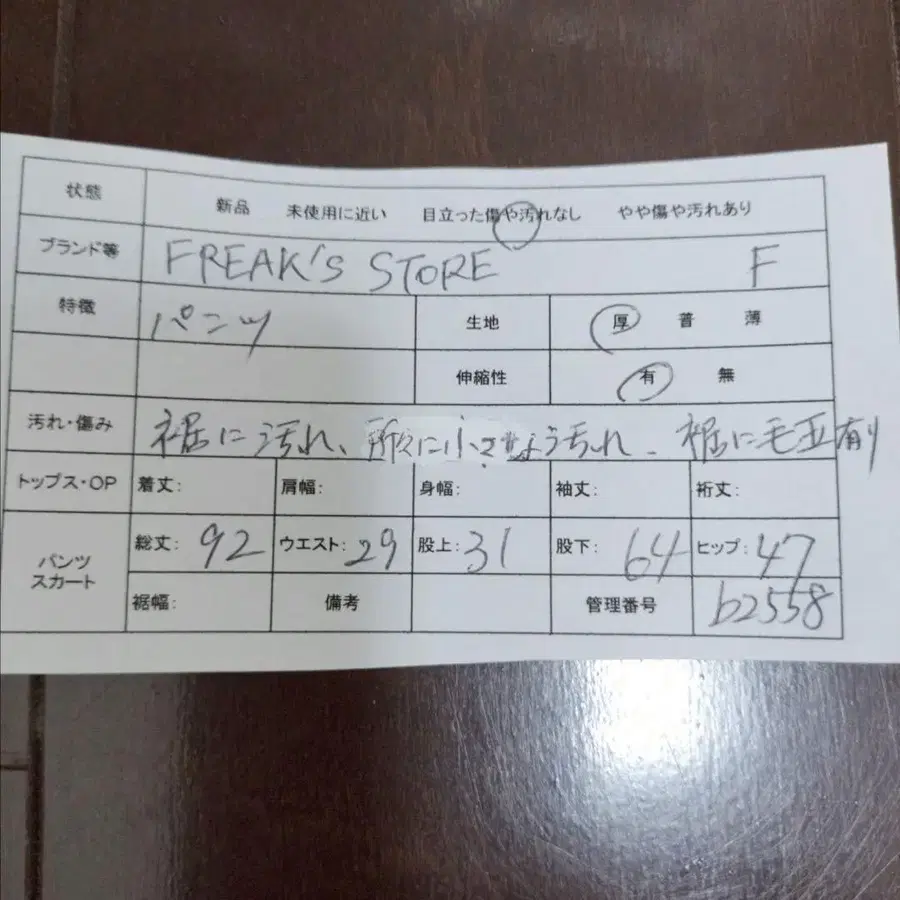 状態 新品 未使用に近い 目立った傷や汚れなし やや傷や汚れあり
ブランド等 FREAK'S STORE F
特徴 パンツ 生地 厚 普 薄
伸縮性 有 無
汚れ・傷み 裾に汚れ、所々に小さな汚れ、裾に毛玉有り
トップス・OP 着丈: 肩幅: 身幅: 袖丈: 裄丈:
パンツ スカート 総丈: 92 ウエスト: 29 股上: 31 股下: 64 ヒップ: 47
裾幅: 備考 管理番号 b2558